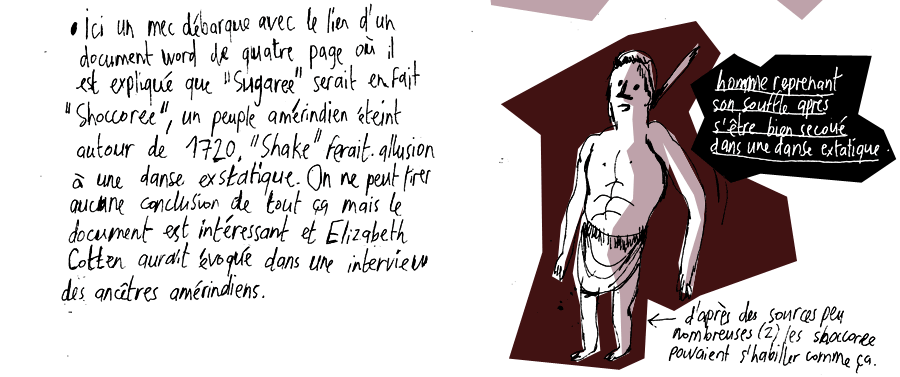 • Ici un mec débarque avec le lien d'un
document word de quatre page où il
est expliqué que "Sugaree" serait en fait
"Shoccoree", un peuple amérindien éteint
autour de 1720, "Shake" ferait allusion
à une danse exstatique. On ne peut tirer
aucune conclusion de tout ça mais le
document est intéressant et Elizabeth
Cotten aurait évoqué dans une interview
des ancêtres amérindiens.
homme reprenant
son souffle après
s'être bien secoué
dans une danse extatique.
← d'après des sources peu
nombreuses (2) les shoccoree
pouvaient s'habiller comme ça.